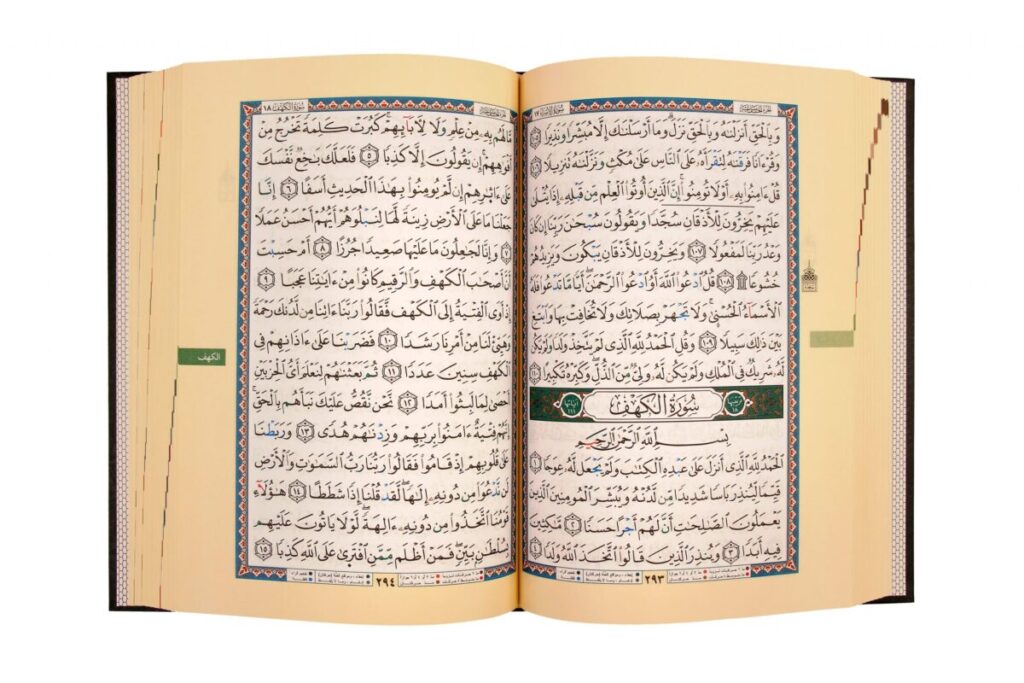 سورة الإسراء ١٧
وبالحق أنزلنه وبالحق نزل وما أرسلنك إلا مبشرا ونذيرا
وقرءانا فرقنه لتقرأه على الناس على مكث ونزلنه تنزيلا
قل ءامنوا به أو لا تومنوا إن الذين أوتوا العلم من قبله إذا يتلى
عليهم يخرون للأذقان سجدا ويقولون سبحن ربنا إن كان
وعد ربنا لمفعولا ١٠٧ ويخرون للأذقان يبكون ويزيدهم
خشوعا ١٠٨ قل ادعوا الله أو ادعوا الرحمن أيا ما تدعوا فله
الأسماء الحسنى ولا تجهر بصلاتك ولا تخافت بها وابتغ
بين ذلك سبيلا ١٠٩ وقل الحمد لله الذى لم يتخذ ولدا ولم يكن
له شريك فى الملك ولم يكن له ولى من الذل وكبره تكبيرا
ترتيبها ١٨ سورة الكهف آياتها
بسم الله الرحمن الرحيم
الحمد لله الذى أنزل على عبده الكتب ولم يجعل له عوجا ١
قيما لينذر باسا شديدا من لدنه ويبشر المومنين الذين
يعملون الصلحت أن لهم أجرا حسنا ٢ مكثين
فيه أبدا ٣ وينذر الذين قالوا اتخذ الله ولدا ٤
٢٩٣
سورة الكهف ١٨
ما لهم به من علم ولا لأبآئهم كبرت كلمة تخرج من
أفوههم إن يقولون إلا كذبا ٥ فلعلك بخع نفسك
على ءاثرهم إن لم يومنوا بهذا الحديث أسفا ٦ إنا
جعلنا ما على الأرض زينة لها لنبلوهم أيهم أحسن عملا
٧ وإنا لجعلون ما عليها صعيدا جرزا ٨ أم حسبت
أن أصحب الكهف والرقيم كانوا من ءايتنا عجبا ٩
إذ أوى الفتية إلى الكهف فقالوا ربنا ءاتنا من لدنك رحمة
وهيئ لنا من أمرنا رشدا ١٠ فضربنا على ءاذانهم فى
الكهف سنين عددا ١١ ثم بعثنهم لنعلم أى الحزبين
أحصى لما لبثوا أمدا ١٢ نحن نقص عليك نبأهم بالحق
إنهم فتية ءامنوا بربهم وزدنهم هدى ١٣ وربطنا
على قلوبهم إذ قاموا فقالوا ربنا رب السموت والأرض
لن ندعوا من دونه إلها لقد قلنا إذا شططا ١٤ هؤلاء
قومنا اتخذوا من دونه ءالهة لولا ياتون عليهم
بسلطن بين فمن أظلم ممن افترى على الله كذبا ١٥
٢٩٤
الكهف